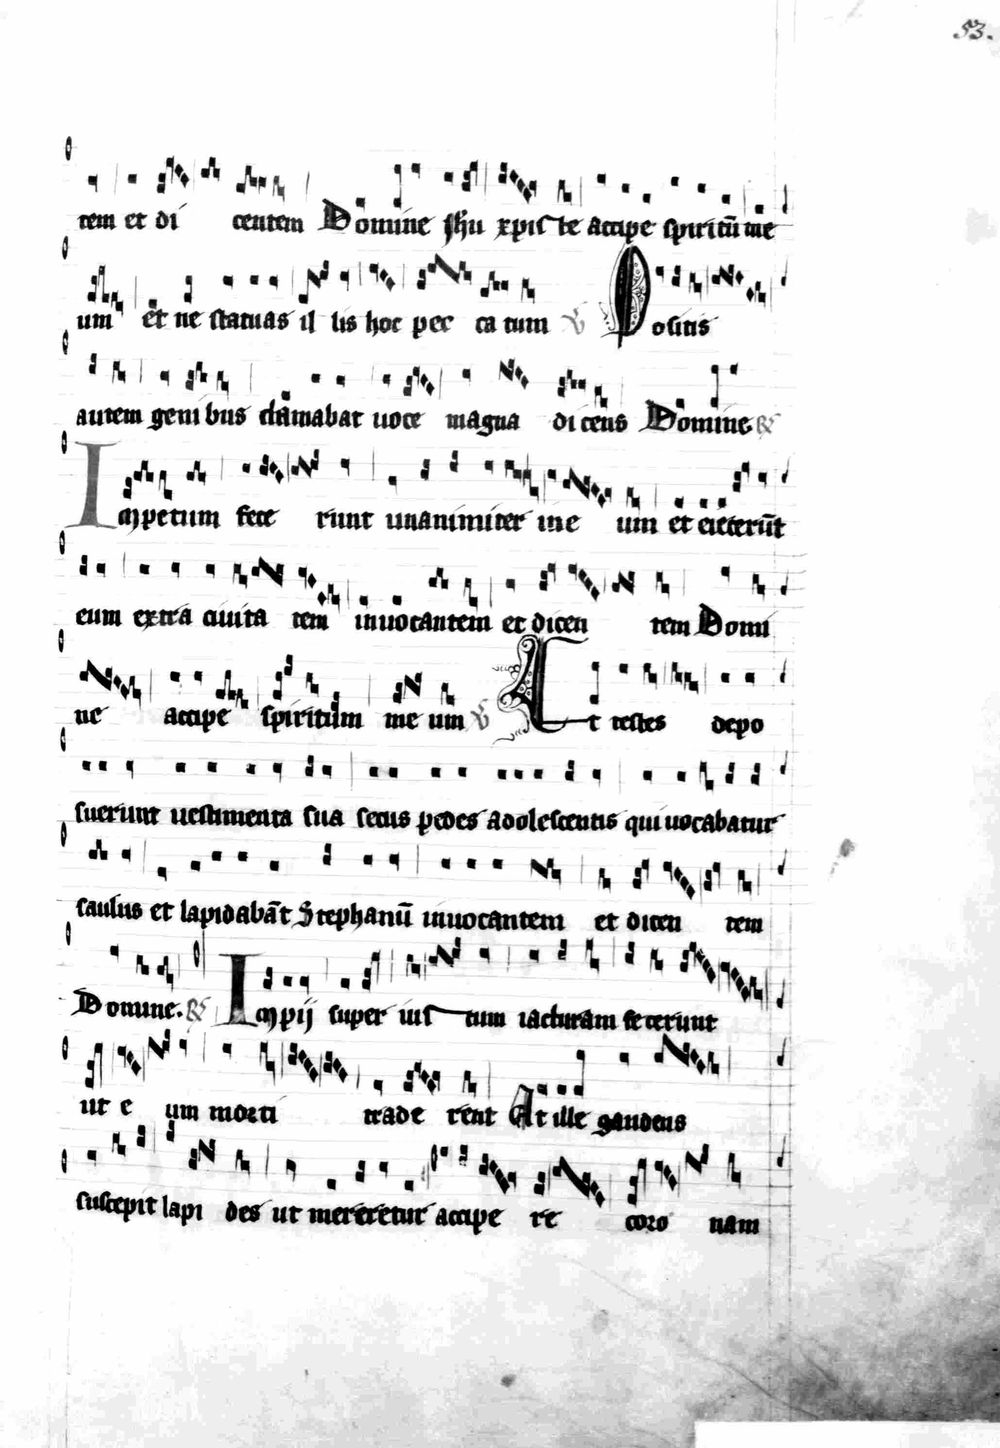 53.
tem et di centem Domine Jhu xpiste accipe spiritū me
um et ne statuas il lis hoc pec ca tum V Positis
autem geni bus clamabat uoce magna di cens Domine
Impetum fece runt unanimiter in e um et eiecerūt
eum extra ciuita tem inuocantem et dicen tem Domi
ne accipe spiritum me um V Et testes depo
suerunt uestimenta sua secus pedes adolescentis qui uocabatur
saulus et lapidabāt Stephanū inuocantem et dicen tem
Domine. Impij super iustum iacturam fecerunt
ut e um morti trade rent At ille gaudens
suscepit lapi des ut mereretur accipe re coro nam